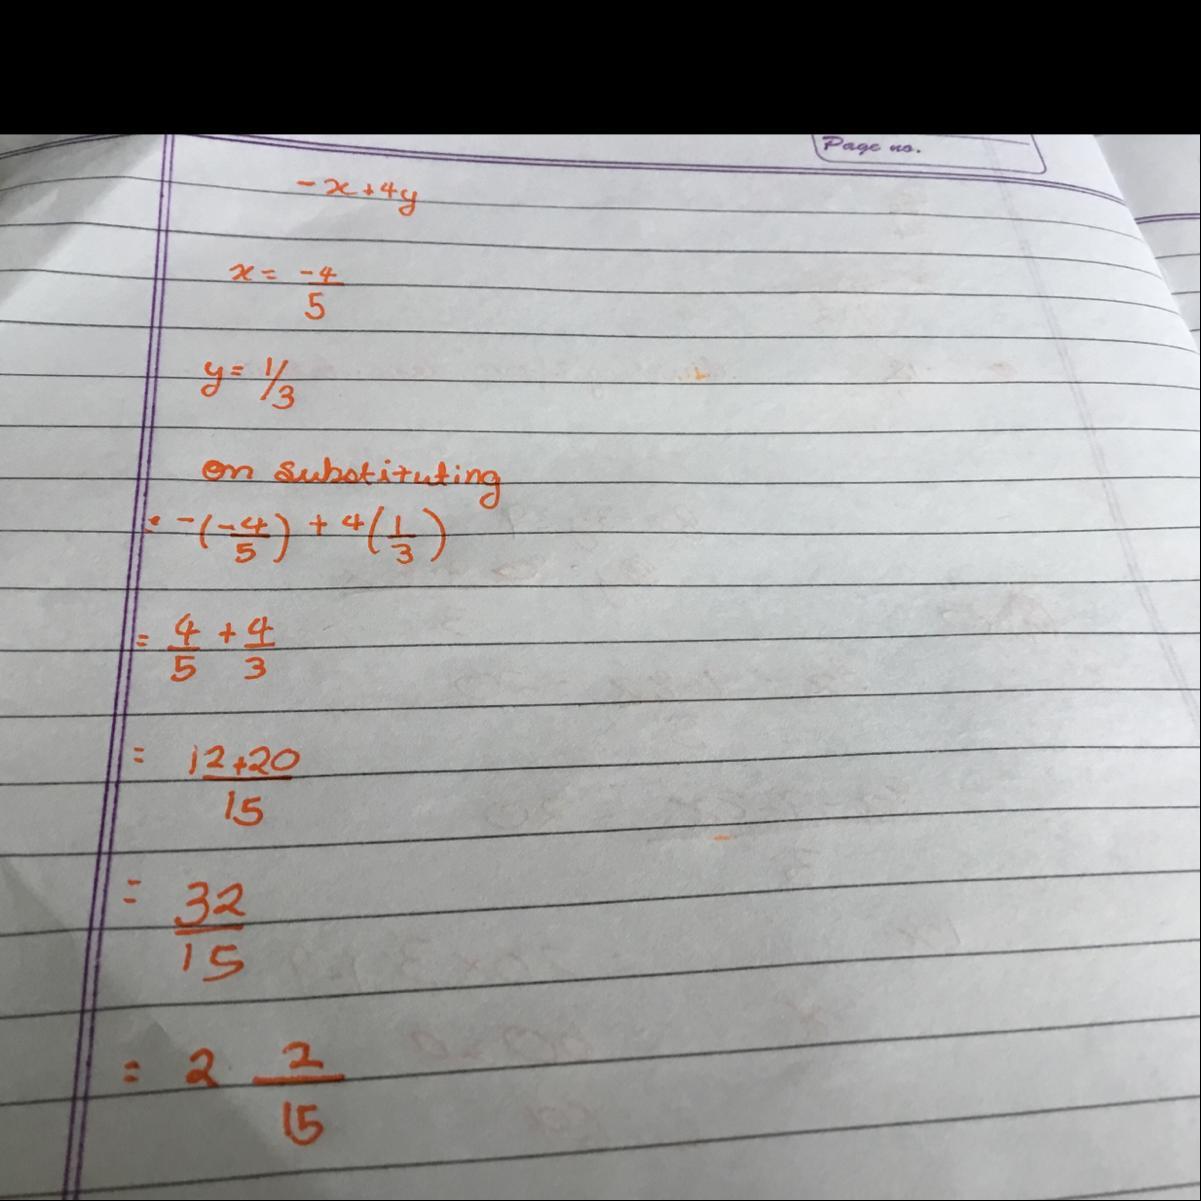 Page no.
-x+4y
x= -4/5
y= 1/3
on substituting
: -(-4/5) + 4(1/3)
= 4/5 + 4/3
= 12+20/15
= 32/15
= 2 2/15